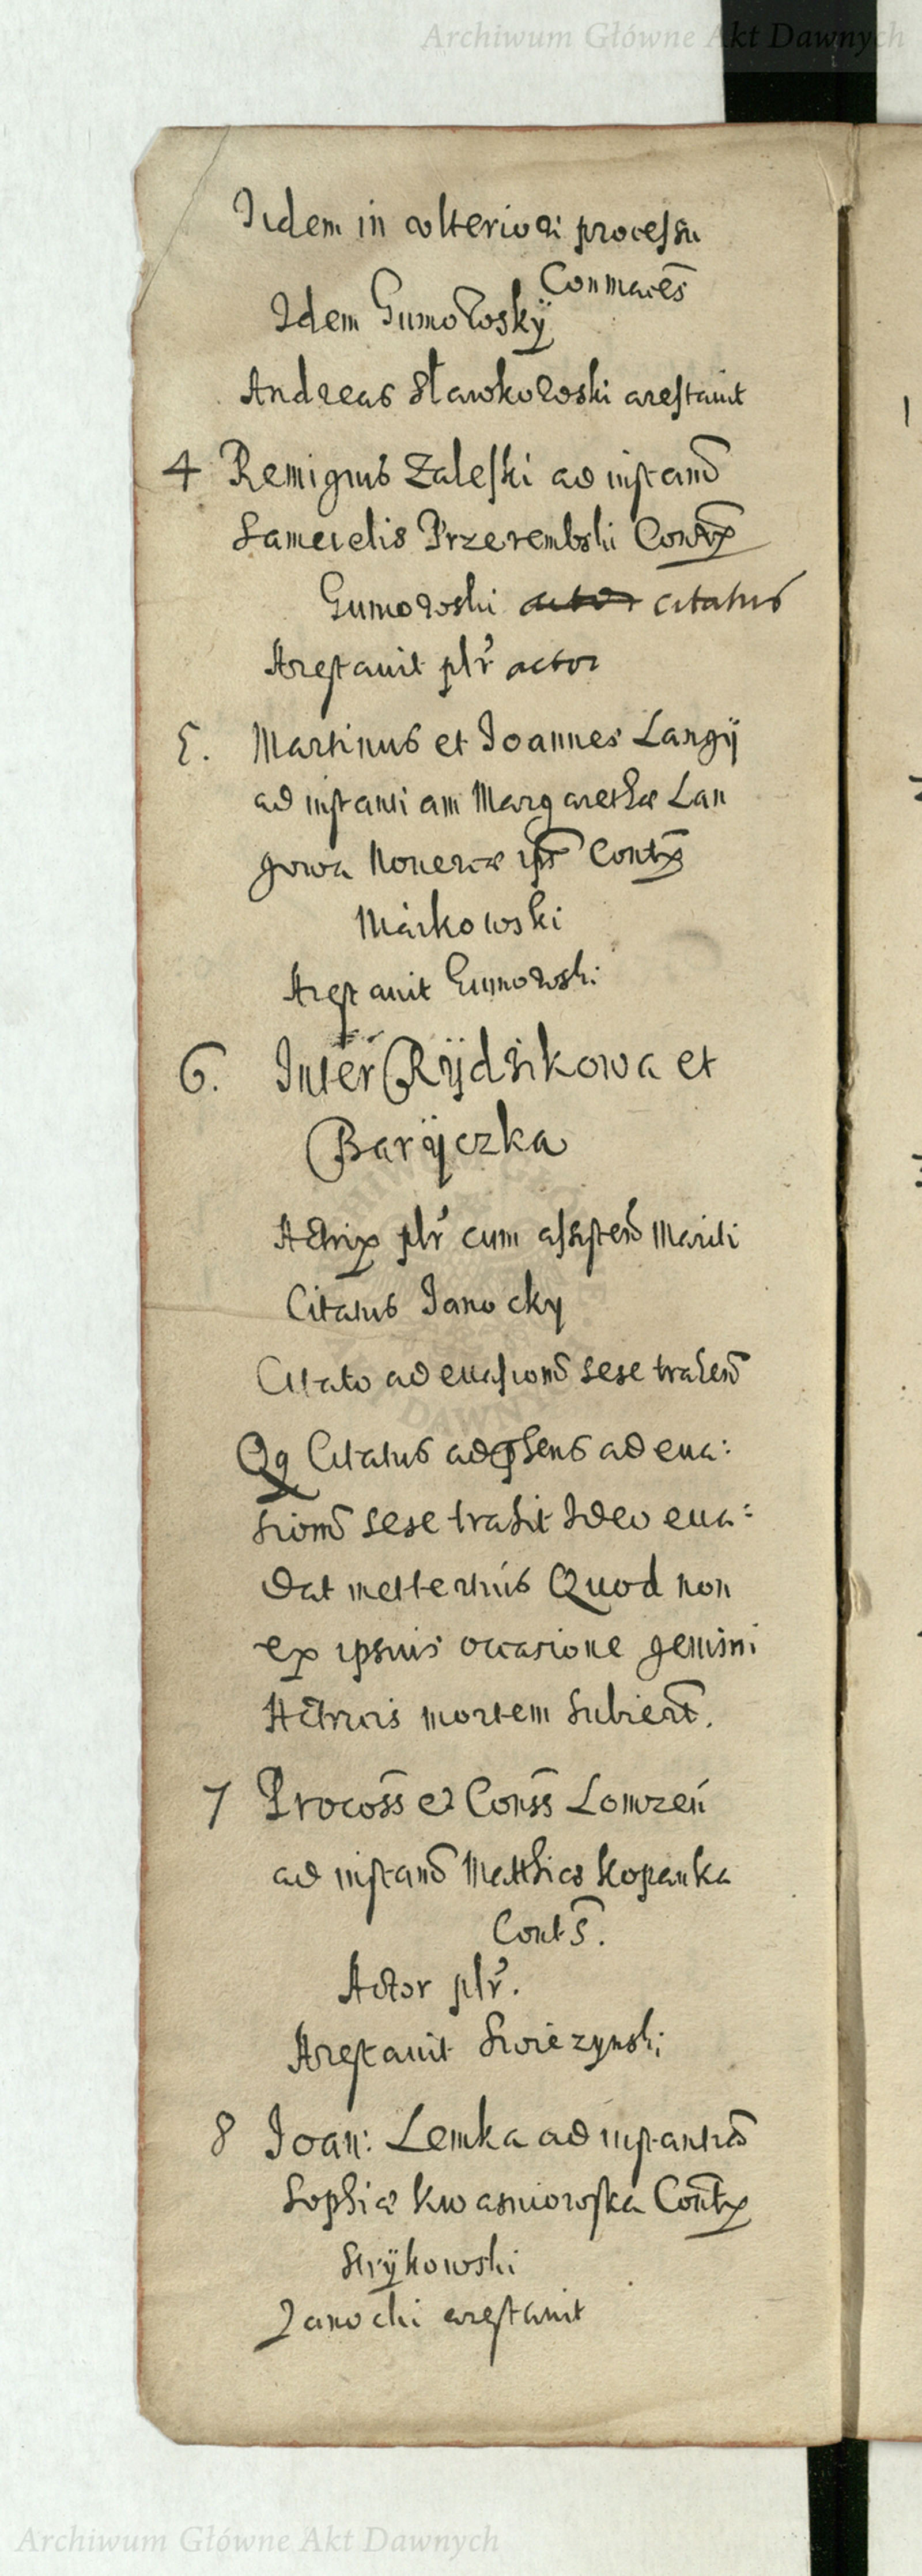 Archiwum Główne Akt Dawnych
Iidem in ulteriori processu
Conmaces
Idem Gumowsky
Andreas Sławkowski arestauit
4 Remigius Zaleski ad instam
Samuelis Przerembski Contx
Gumowski citatus
Arestauit plr actor
5. Martinus et Ioannes Langij
ad instantiam Margarethæ Lan
gowa Nouercæ ips Contx
Markowski
Arestauit Gumowski
6. Inter Rÿdzikowa et
Barÿczka
Actrix plr cum assisten Mariti
Citatus Janocky
Citato ad euasionem sese trahen
Qq Citatus adhens ad eua:
siom sese trahit Ideo eua:
dat mettertius Quod non
ex ipsius occasione gemini
Actricis mortem subiert.
7 Procoss et Conss Lomzen
ad instam Matthias Kopanka
Conts.
Actor plr.
Arestauit Swiezynski
8 Ioan: Lemka ad instantia
Sophiæ Kwasniowska Contx
Strÿkowski
Janocki arestauit
Archiwum Główne Akt Dawnych